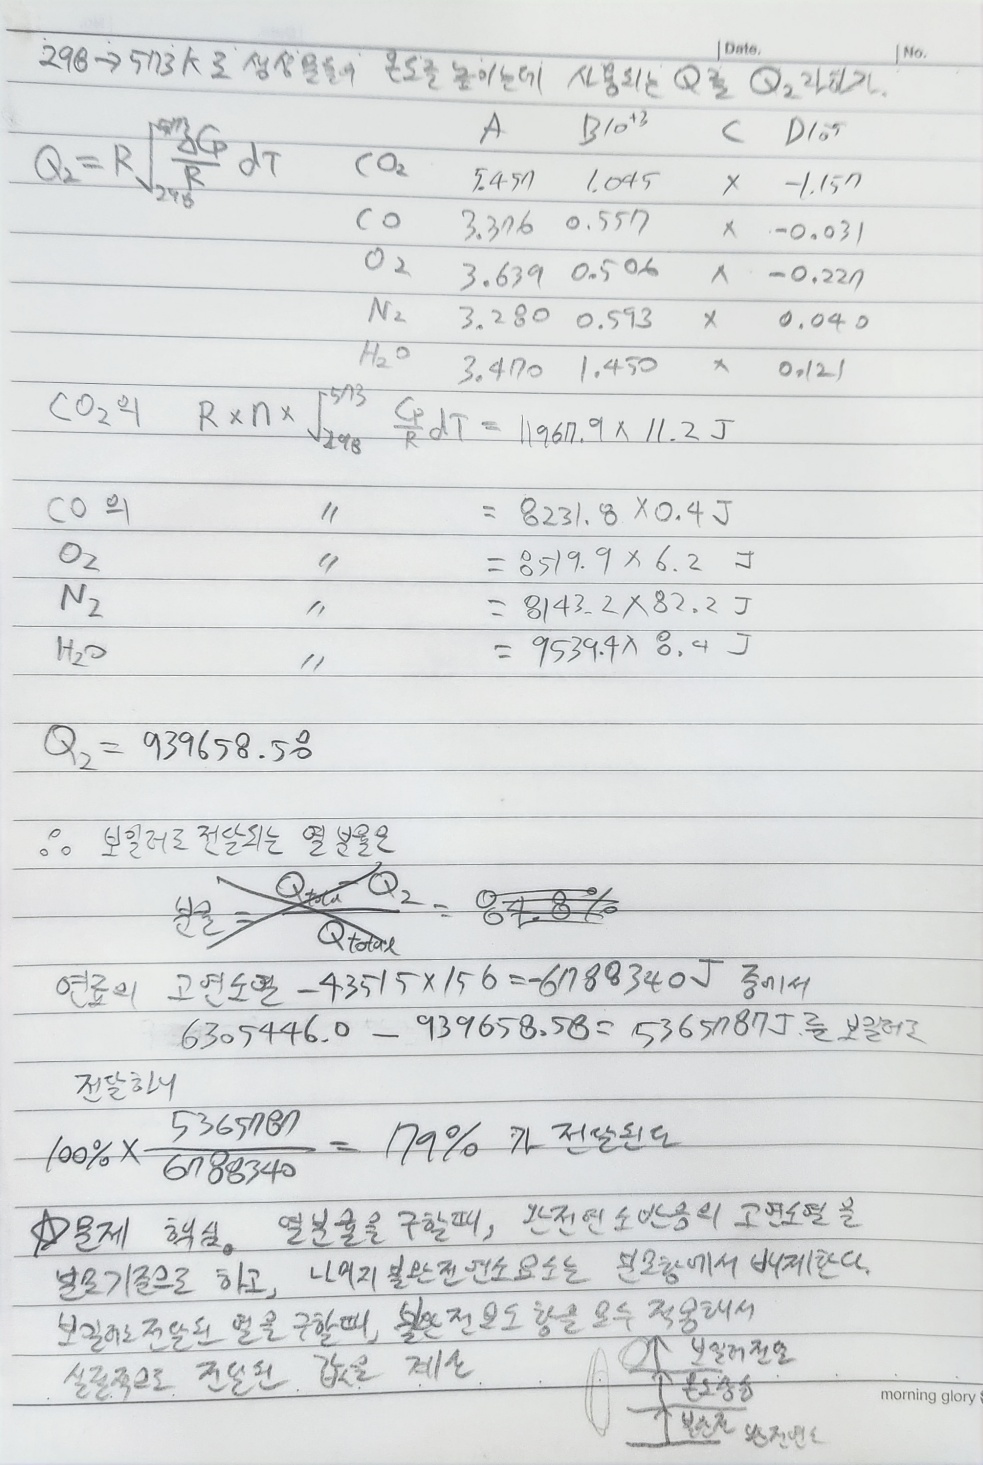 Date. No.
298→573K로 생성물들의 온도를 높이는데 사용되는 Q를 Q₂라하자.
A B10⁺³ C D10⁻⁵
Q₂ = R ∫₂₉₈⁵⁷³ ΔCp/R dT
CO₂ 5.457 1.045 × -1.157
CO 3.376 0.557 × -0.031
O₂ 3.639 0.506 × -0.227
N₂ 3.280 0.593 × 0.040
H₂O 3.470 1.450 × 0.121
CO₂의 R×n×∫₂₉₈⁵⁷³ Cp/R dT = 11967.9 × 11.2 J
CO의 〃 = 8231.8 × 0.4 J
O₂ 〃 = 8519.9 × 6.2 J
N₂ 〃 = 8143.2 × 82.2 J
H₂O 〃 = 9539.4 × 8.4 J
Q₂ = 939658.58
∴ 보일러로 전달되는 열 분율은
분율 = Qtotal - Q₂ / Qtotal = 84.8%
연료의 고연소열 -43515×156 = -6788340J 중에서
6305446.0 - 939658.58 = 5365787J를 보일러로
전달하니
100% × 5365787/6788340 = 79%가 전달된다
☆문제 핵심. 열분율을 구할때, 완전연소반응의 고연소열을
분모기준으로 하고, 나머지 불완전연소요소는 분모항에서 배제한다.
보일러로 전달된 열을 구할때, 항을 모두 적용해서
실질적으로 전달된 값을 계산
보일러전달
온도상승
불완전 완전연소
morning glory